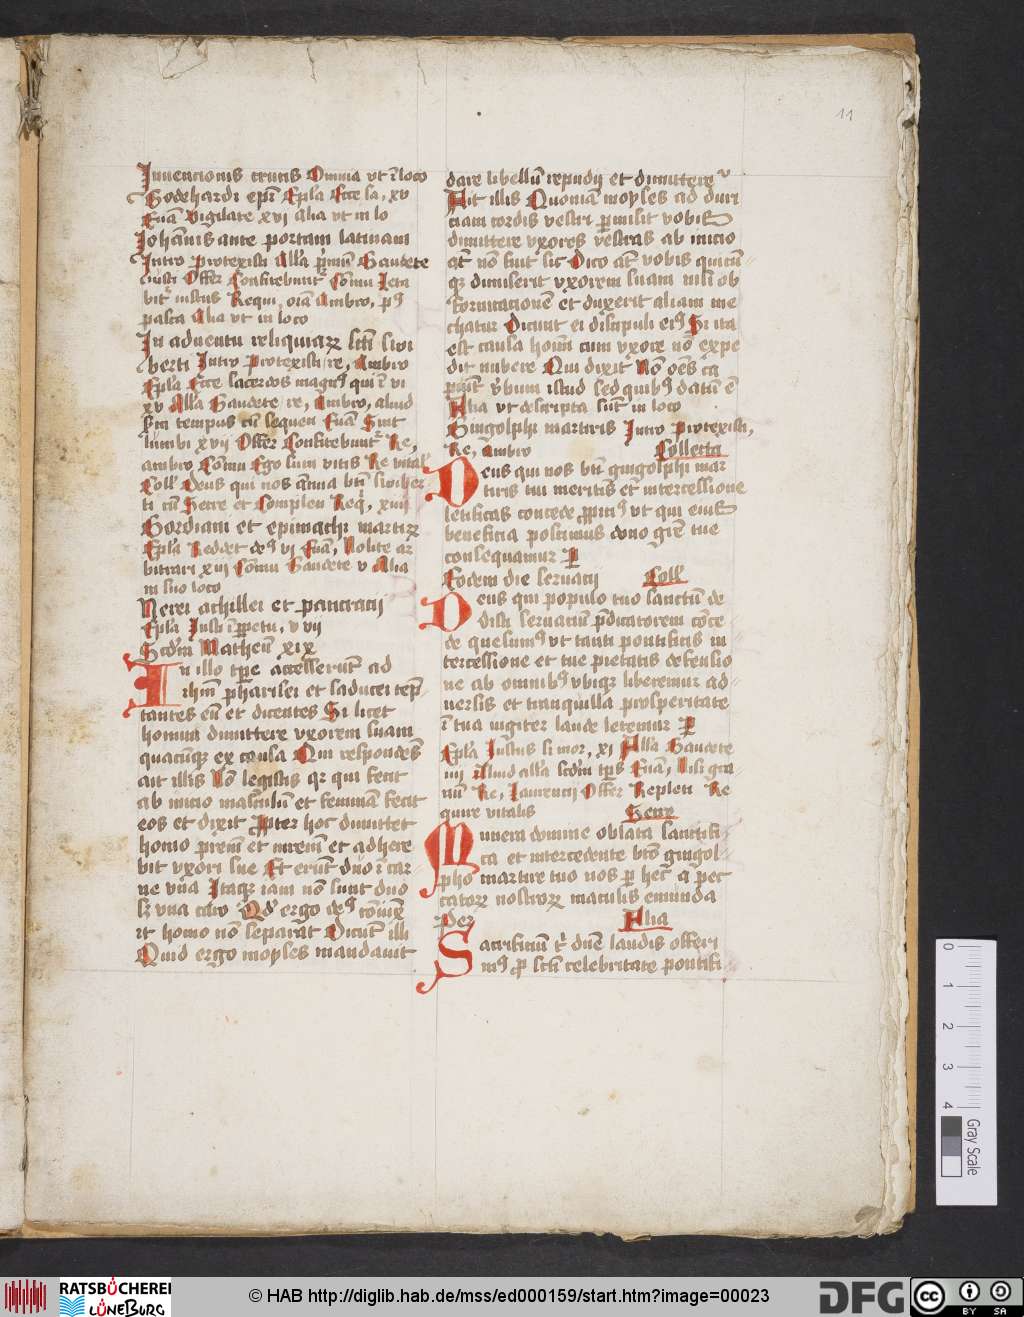 11
Invencionis crucis Omnia vt ī loco
Godehardi epī Epła Ecce sa, xv
Euā Vigilate xvi alia vt in lo
Johānis ante portam latinam
Intro Protexisti Alla p̄mū Gaudete
iusti Offer Confitebunt Cōmu leta
bit iustus Requi, oīa Ambro, p9
pasca Alia vt in loco
In adventu reliquiarꝝ scti livi
berti Intro Protexisti re, Ambro
Epła Ecce sacerdos magn9 qui ī vi
xv Alla Gaudete re, Ambro, aliud
scm tempus cū sequen Euā Sint
lumbi xvij Offer Confitebunt Re,
ambro Cōmu Ego sum vitis Re vital
Coll Deus qui nos annua bti liviber
ti cū Secre et Complen Req, xiiij
Gordiani et epimachi martirꝝ
Epła Reddet de9 vj Euā, Nolite ar
bitrari xij Cōmu Gaudete v Alia
in suo loco
Nerei achillei et pancracij
Epła Justi ī ppetu, v vij
Scdm Matheū xix
In illo tpe accesserūt ad
ihm pharisei et saducei tēp
tantes eū et dicentes Si licet
homini dimittere vxorem suam
quacūqꝫ ex causa Qui respondēs
ait illis Nō legistis qꝛ qui fecit
ab inicio masculū et feminā fecit
eos et dixit Propter hoc dimittet
homo prēm et mrem et adhere
bit vxori sue Et erūt duo ī car
ne vna Itaqꝫ iam nō sunt duo
sꝫ vna caro Qd ergo de9 cōiūx
it homo nō separat Dicūt illi
Quid ergo moyses mandavit
dare libellū repudij et dimittere
Ait illis Quoniam moyses ad duri
ciam cordis vestri pmisit vobis
dimittere vxores vestras ab inicio
at nō fuit sic Dico at vobis quicū
qꝫ dimiserit vxorem suam nisi ob
fornicacionē et duxerit aliam me
chatur Dicunt ei discipuli ei9 Si ita
est causa homī cum vxore nō expe
dit nubere Qui dixit Nō oēs ca
piūt vbum istud sed quib9 datū ē
Alia vt descripta sūt in loco
Gingolphi martiris Intro Protexisti,
Re, Ambro Collecta
Deus qui nos bti gingolphi mar
tiris tui meritis et intercessione
letificas concede ppici9 vt qui eius
beneficia poscimus dono grē tue
consequamur P
Eodem die servacij Coll
Deus qui populo tuo sanctū de
disti servaciū pdicatorem cōce
de quesum9 vt tanti pontificis in
tercessione et tue pietatis defensio
ne ab omnib9 vbiqꝫ liberemur ad
versis et tranquilla prosperitate
ī tua iugiter laude letemur P
Epła Justus si mor, xi Alla Gaudete
iiij Aliud alla scdm tps Euā, Nisi gra
nū Re, laurencij Offer Repleti Re
quire vitalis Secre
Munera domine oblata sanctifi
ca et intercedente bto gingol
pho martire tuo nos p hec a pec
catorꝝ nostrorꝝ maculis emunda
Per Alia
Sacrificiū t dne laudis offeri
m9 p scti celebritate pontifi
0 1 2 3 4
Gray Scale
RATSBÜCHEREI
LÜNEBURG
© HAB http://diglib.hab.de/mss/ed000159/start.htm?image=00023
DFG
cc BY SA